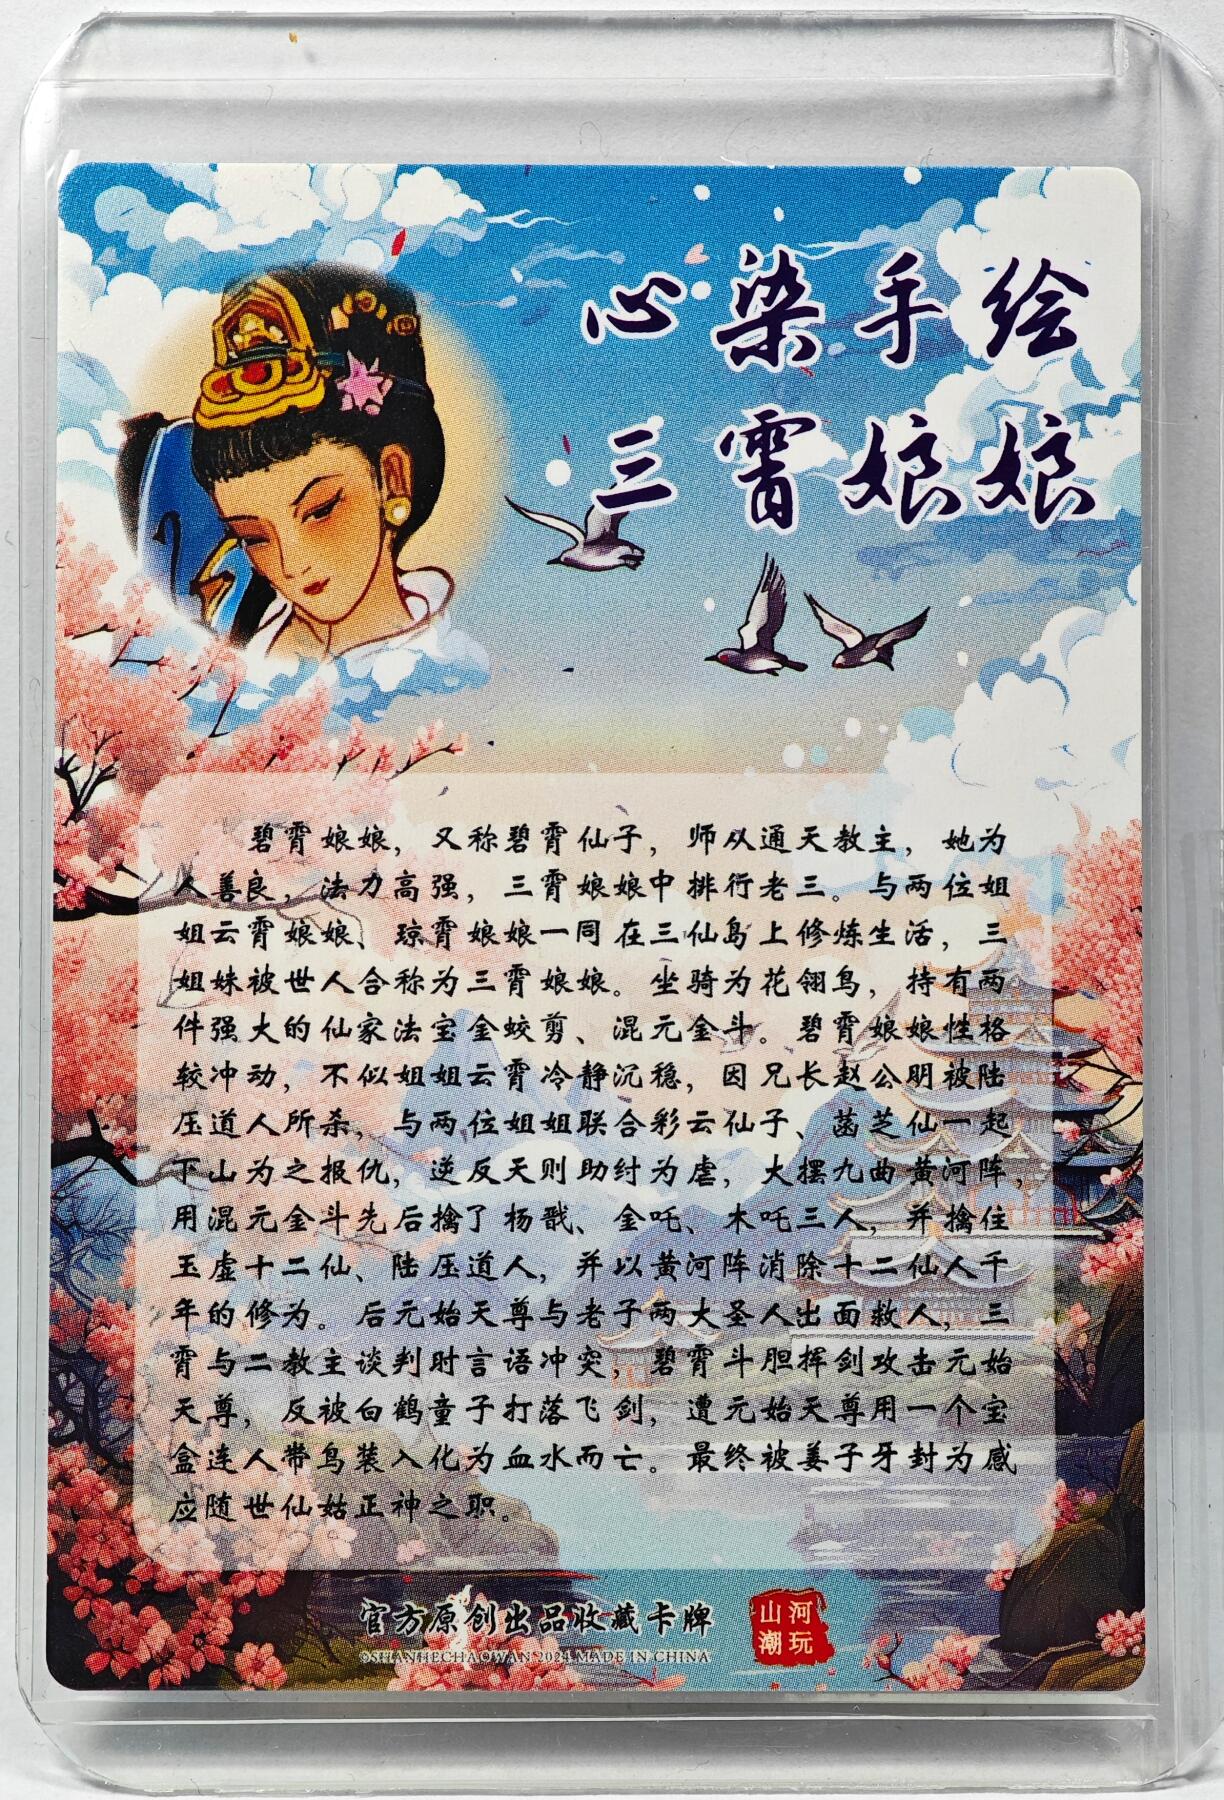 心染手绘
三霄娘娘
碧霄娘娘，又称碧霄仙子，师从通天教主，她为
人善良，法力高强，三霄娘娘中排行老三。与两位姐
姐云霄娘娘、琼霄娘娘一同在三仙岛上修炼生活，三
姐妹被世人合称为三霄娘娘。坐骑为花翎鸟，持有两
件强大的仙家法宝金蛟剪、混元金斗。碧霄娘娘性格
较冲动，不似姐姐云霄冷静沉稳，因兄长赵公明被陆
压道人所杀，与两位姐姐联合彩云仙子、菡芝仙一起
下山为之报仇，逆反天则助纣为虐，大摆九曲黄河阵，
用混元金斗先后擒了杨戬、金吒、木吒三人，并擒住
玉虚十二仙、陆压道人，并以黄河阵消除十二仙人千
年的修为。后元始天尊与老子两大圣人出面救人，三
霄与二教主谈判时言语冲突，碧霄斗胆挥剑攻击元始
天尊，反被白鹤童子打落飞剑，遭元始天尊用一个宝
盒连人带鸟装入化为血水而亡。最终被姜子牙封为感
应随世仙姑正神之职。
官方原创出品收藏卡牌
©SHANHECHAOWAN 2024 MADE IN CHINA
山河
潮玩